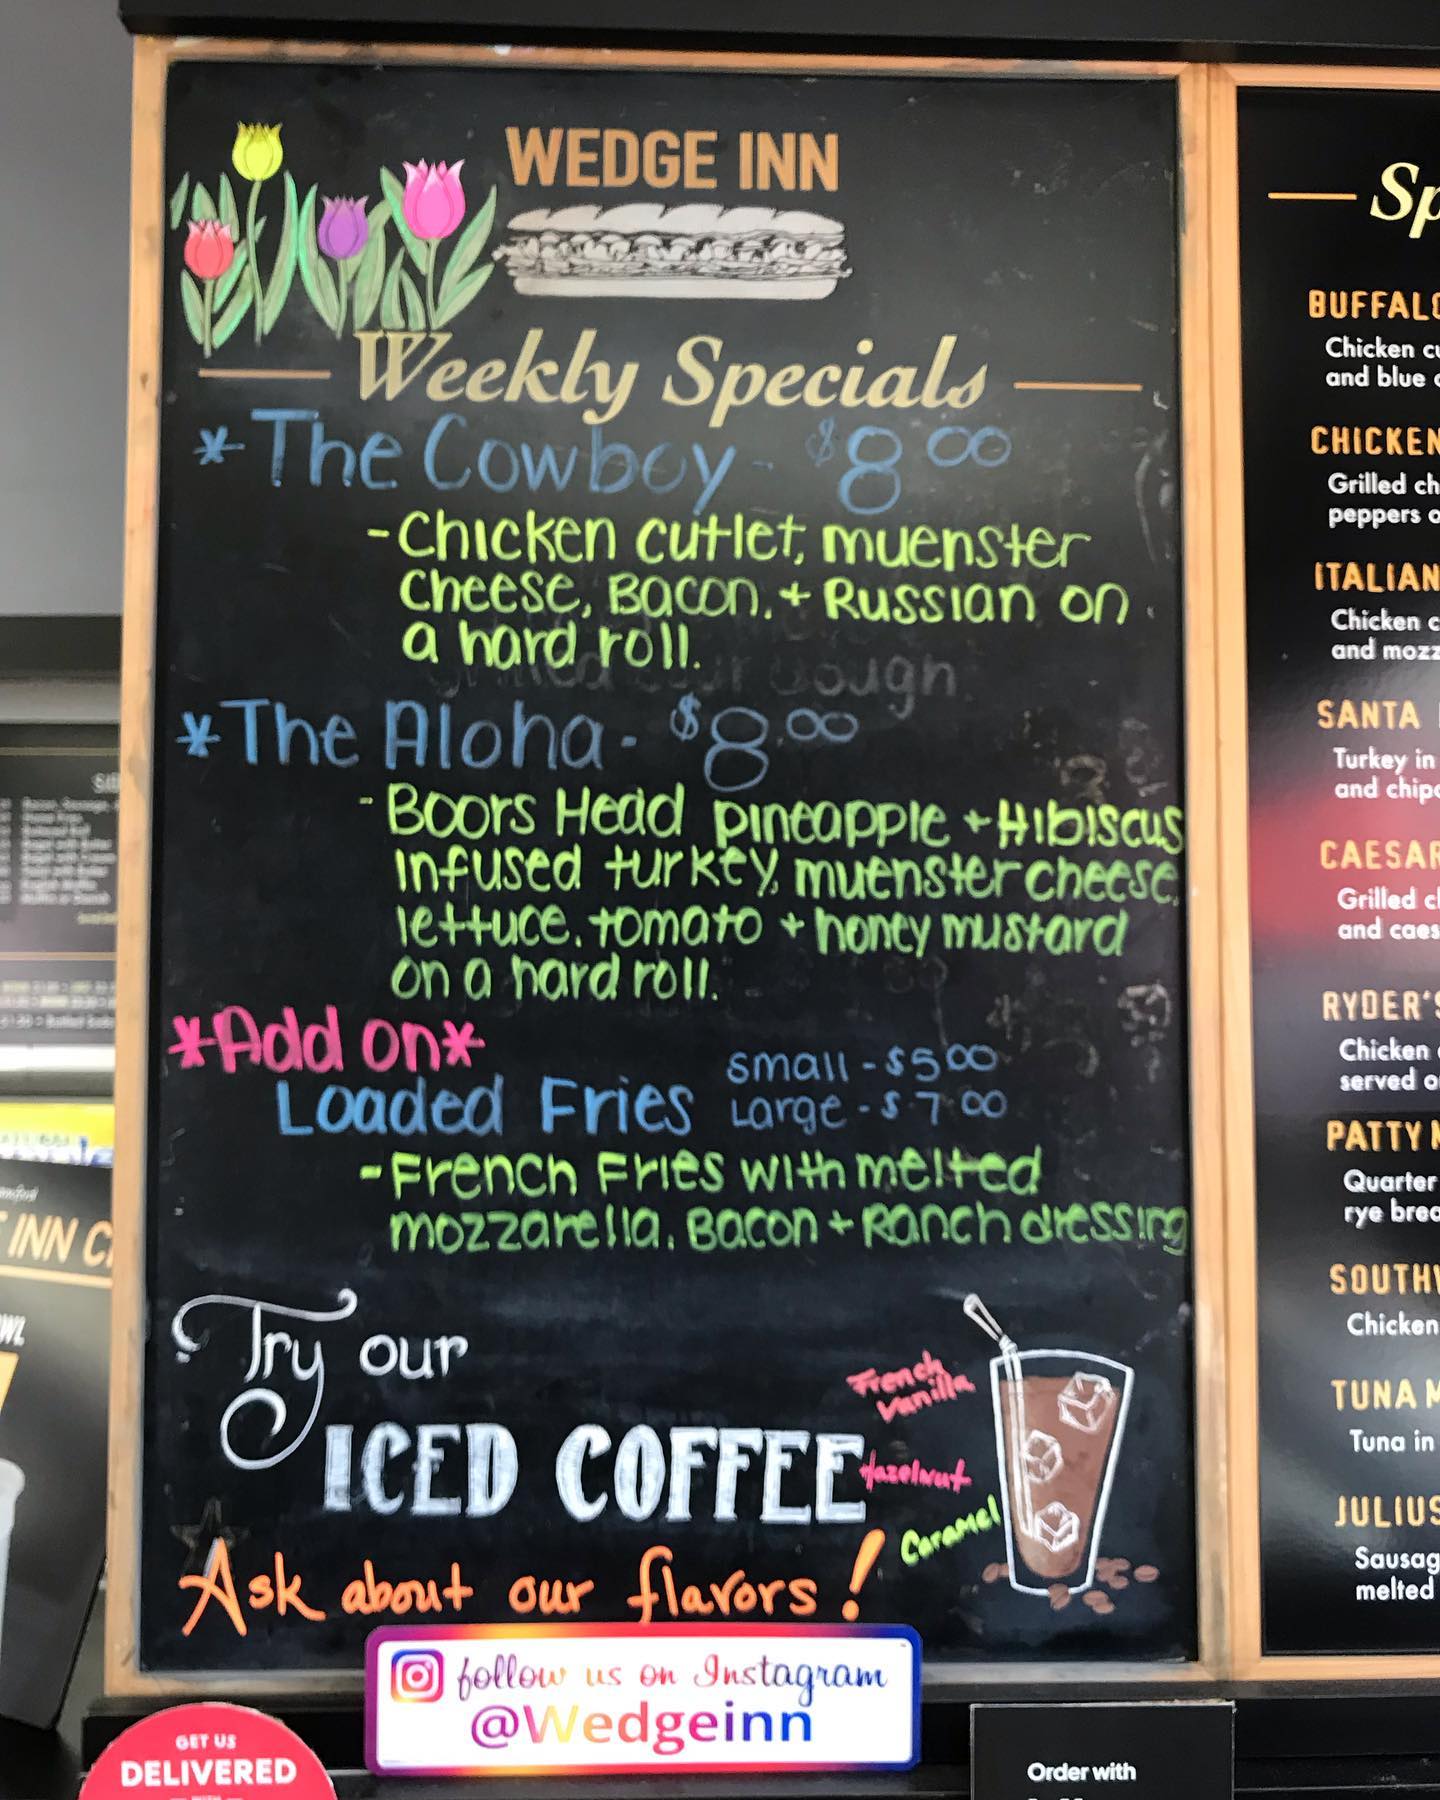 WEDGE INN
Weekly Specials
*The Cowboy - $8.00
-Chicken cutlet, muenster
cheese, Bacon, + Russian on
a hard roll.
*The Aloha - $8.00
- Boors Head pineapple + Hibiscus
infused turkey, muenster cheese,
lettuce, tomato + honey mustard
on a hard roll.
*Add on*
Loaded Fries
small - $5.00
Large - $7.00
-French Fries with melted
mozzarella, Bacon + Ranch dressing
Try our
ICED COFFEE
French
Vanilla
Hazelnut
Caramel
Ask about our flavors!
follow us on Instagram
@Wedgeinn
GET US
DELIVERED
Order with
Chicken
and blue
CHICKEN
Grilled
peppers
ITALIAN
Chicken
and
SANTA
Turkey in
and
Grilled
and
RYDER'S
Chicken
served
PATTY
Quarter
rye
Chicken
TUNA
Tuna in
melted
INN